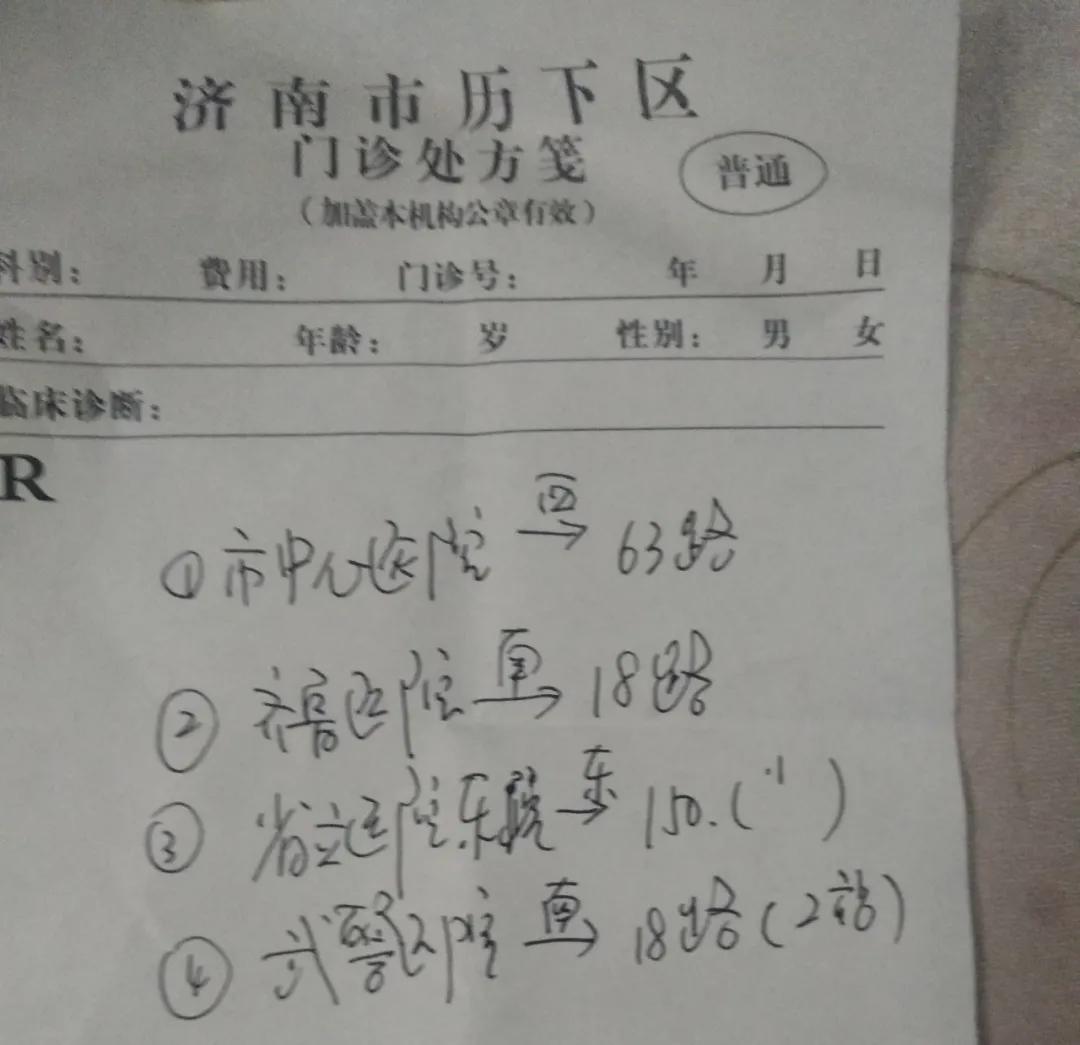 济南市历下区
门诊处方笺
普通
(加盖本机构公章有效)
科别: 费用: 门诊号: 年 月 日
姓名: 年龄: 岁 性别: 男 女
临床诊断:
R
① 市中心医院 西→ 63路
② 齐鲁医院 南→ 18路
③ 省立医院东院 东→ 150.( )
④ 武警医院 南→ 18路(2站)